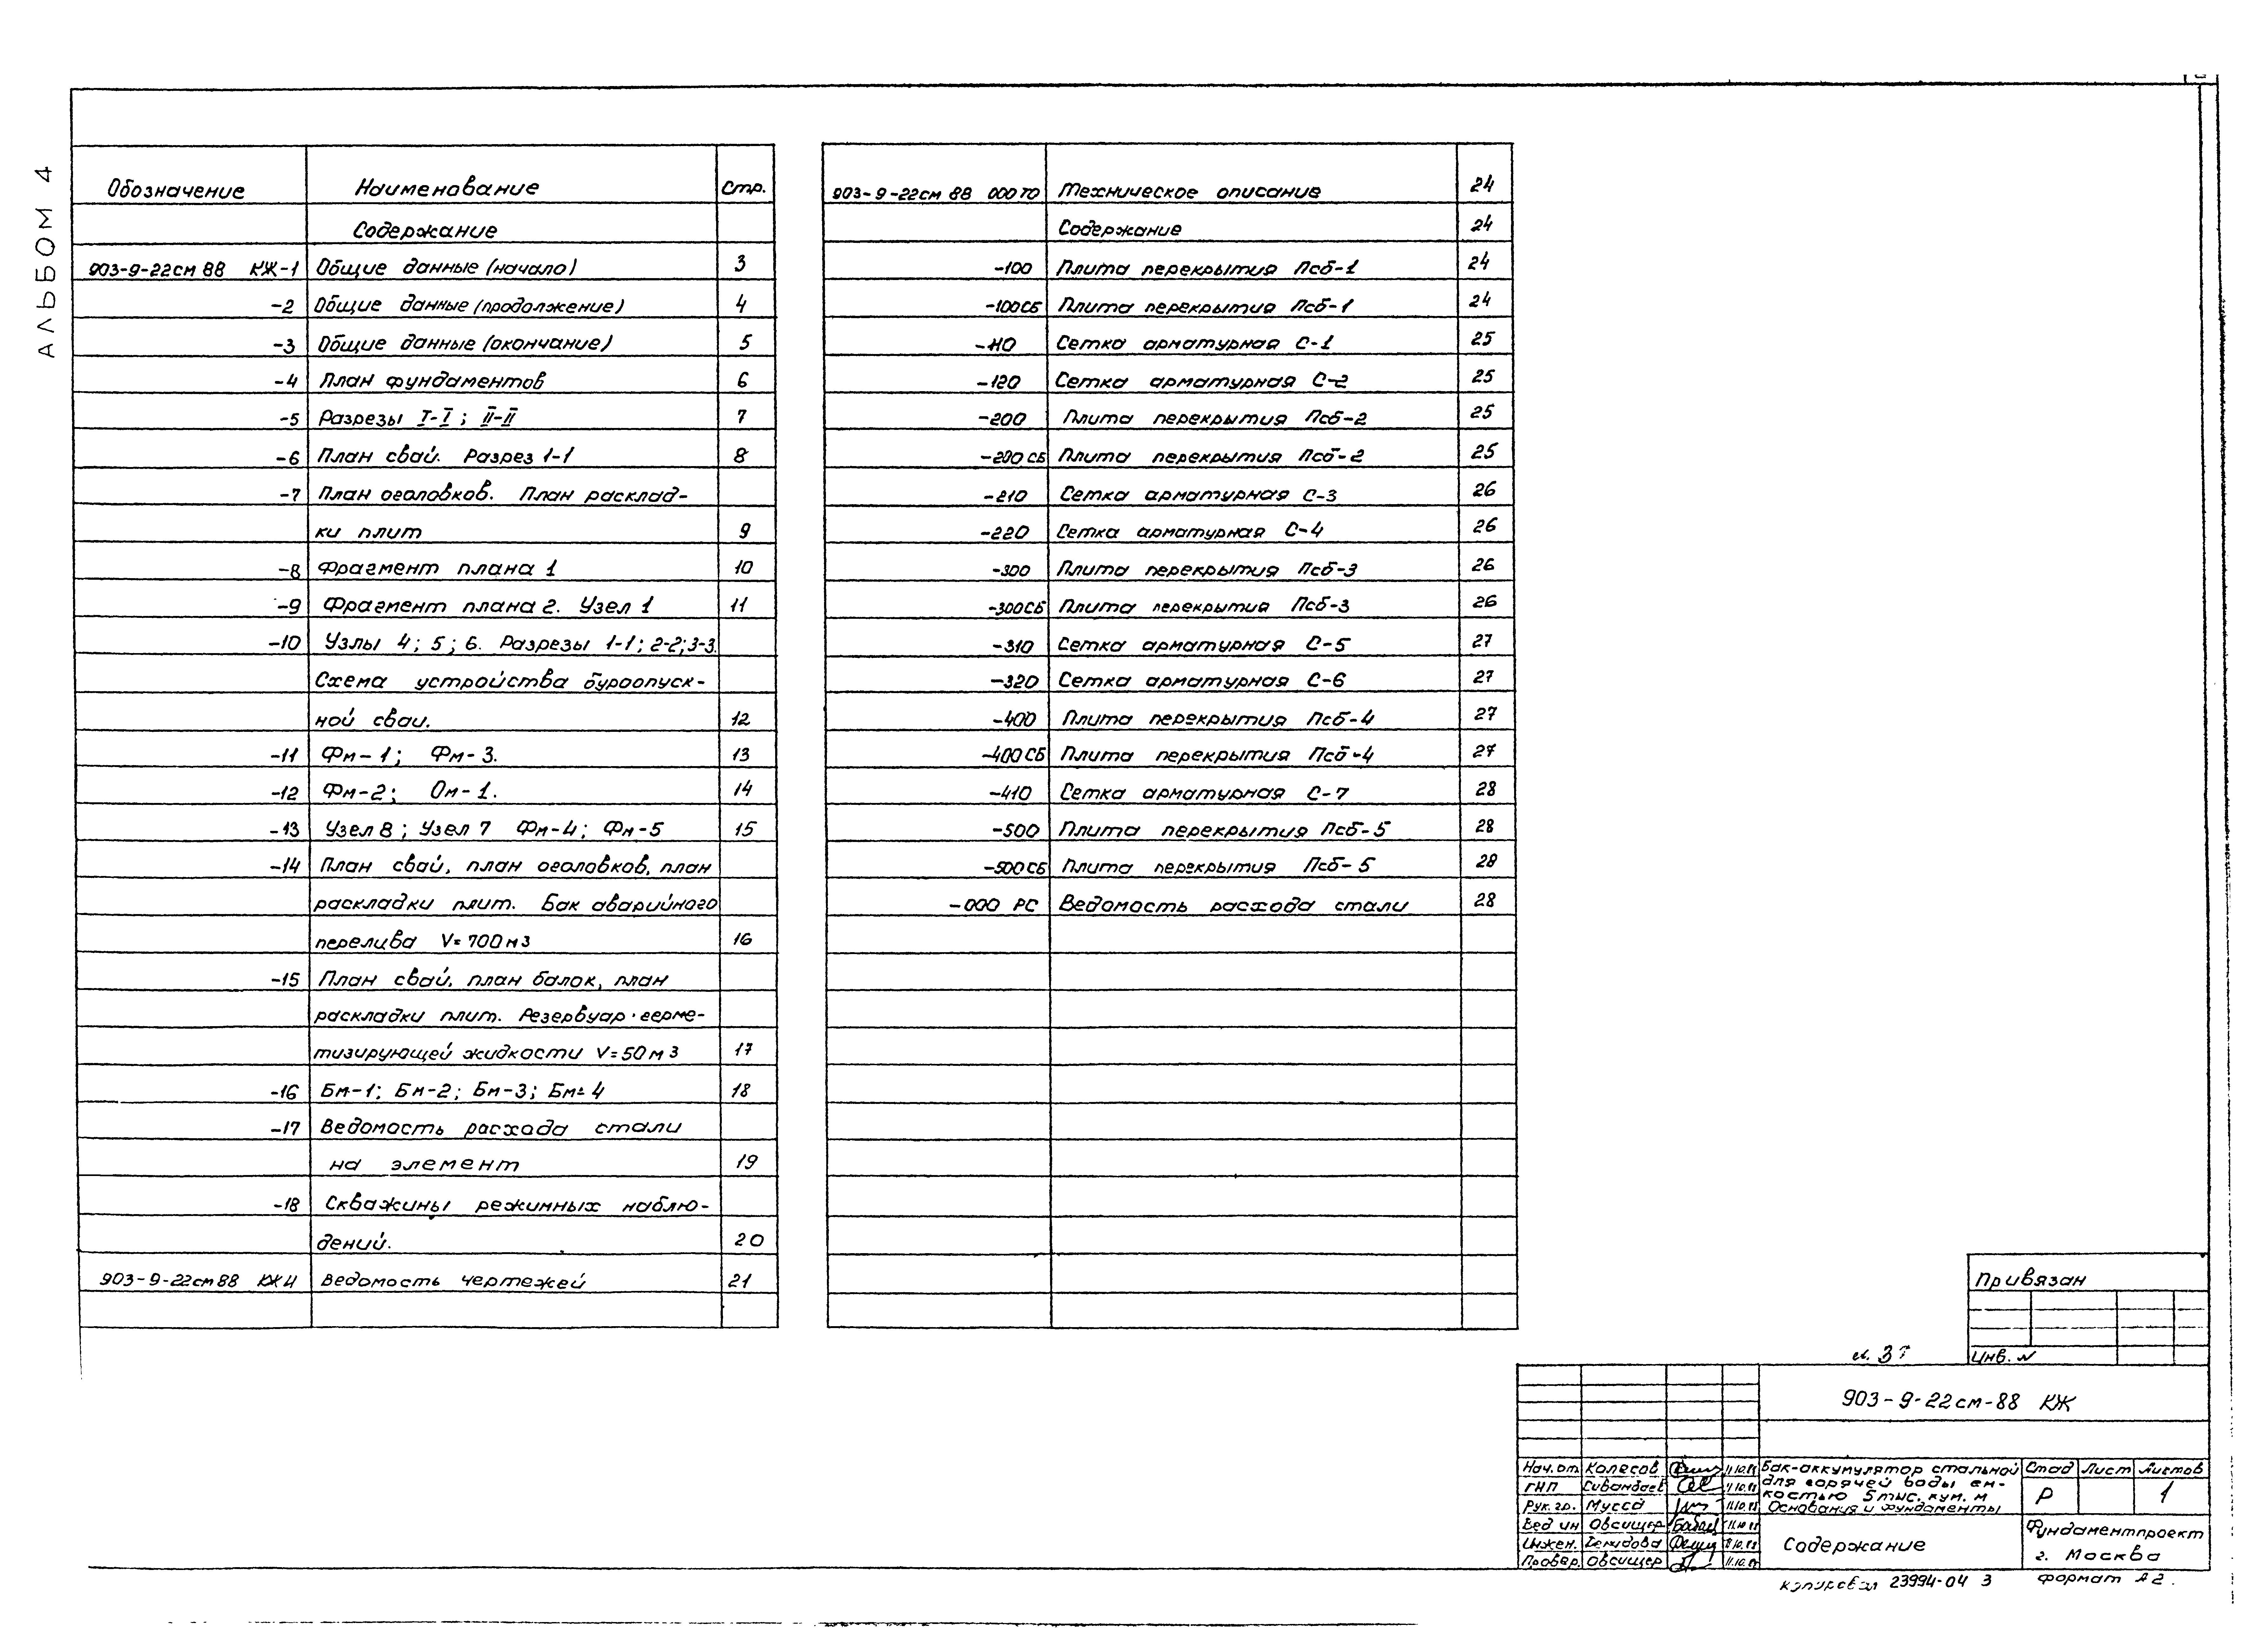 АЛЬБОМ 4
Обозначение Наименование Стр.
Содержание
903-9-22см 88 КЖ-1 Общие данные (начало) 3
-2 Общие данные (продолжение) 4
-3 Общие данные (окончание) 5
-4 План фундаментов 6
-5 Разрезы I-I; II-II 7
-6 План свай. Разрез 1-1 8
-7 План оголовков. План расклад-
ки плит 9
-8 Фрагмент плана 1 10
-9 Фрагмент плана 2. Узел 1 11
-10 Узлы 4; 5; 6. Разрезы 1-1; 2-2; 3-3.
Схема устройства буроопуск-
ной сваи. 12
-11 Фм-1; Фм-3. 13
-12 Фм-2; Ом-1. 14
-13 Узел 8; Узел 7 Фм-4; Фм-5 15
-14 План свай, план оголовков, план
раскладки плит. Бак аварийного
перелива V=700м3 16
-15 План свай, план балок, план
раскладки плит. Резервуар герме-
тизирующей жидкости V=50м3 17
-16 Бм-1; Бм-2; Бм-3; Бм-4 18
-17 Ведомость расхода стали
на элемент 19
-18 Скважины режимных наблю-
дений. 20
903-9-22см 88 КЖИ Ведомость чертежей 21
903-9-22см 88 000ТО Техническое описание 24
Содержание 24
-100 Плита перекрытия Псб-1 24
-100СБ Плита перекрытия Псб-1 24
-110 Сетка арматурная С-1 25
-120 Сетка арматурная С-2 25
-200 Плита перекрытия Псб-2 25
-200СБ Плита перекрытия Псб-2 25
-210 Сетка арматурная С-3 26
-220 Сетка арматурная С-4 26
-300 Плита перекрытия Псб-3 26
-300СБ Плита перекрытия Псб-3 26
-310 Сетка арматурная С-5 27
-320 Сетка арматурная С-6 27
-400 Плита перекрытия Псб-4 27
-400СБ Плита перекрытия Псб-4 27
-410 Сетка арматурная С-7 28
-500 Плита перекрытия Псб-5 28
-500СБ Плита перекрытия Псб-5 28
-000 РС Ведомость расхода стали 28
Привязан
Инв. N
903-9-22см-88 КЖ
Нач.от. Колесов
ГИП
Рук. гр. Мусса
Вед ин Овсищер
Инжен. Демидова
Провер. Овсищер
Бак-аккумулятор стальной
для горячей воды ем-
костью 5 тыс. куб. м
Основания и фундаменты
Стад Лист Листов
Р 1
Содержание
Фундаментпроект
г. Москва
Копировал 23994-04 3 Формат А2.